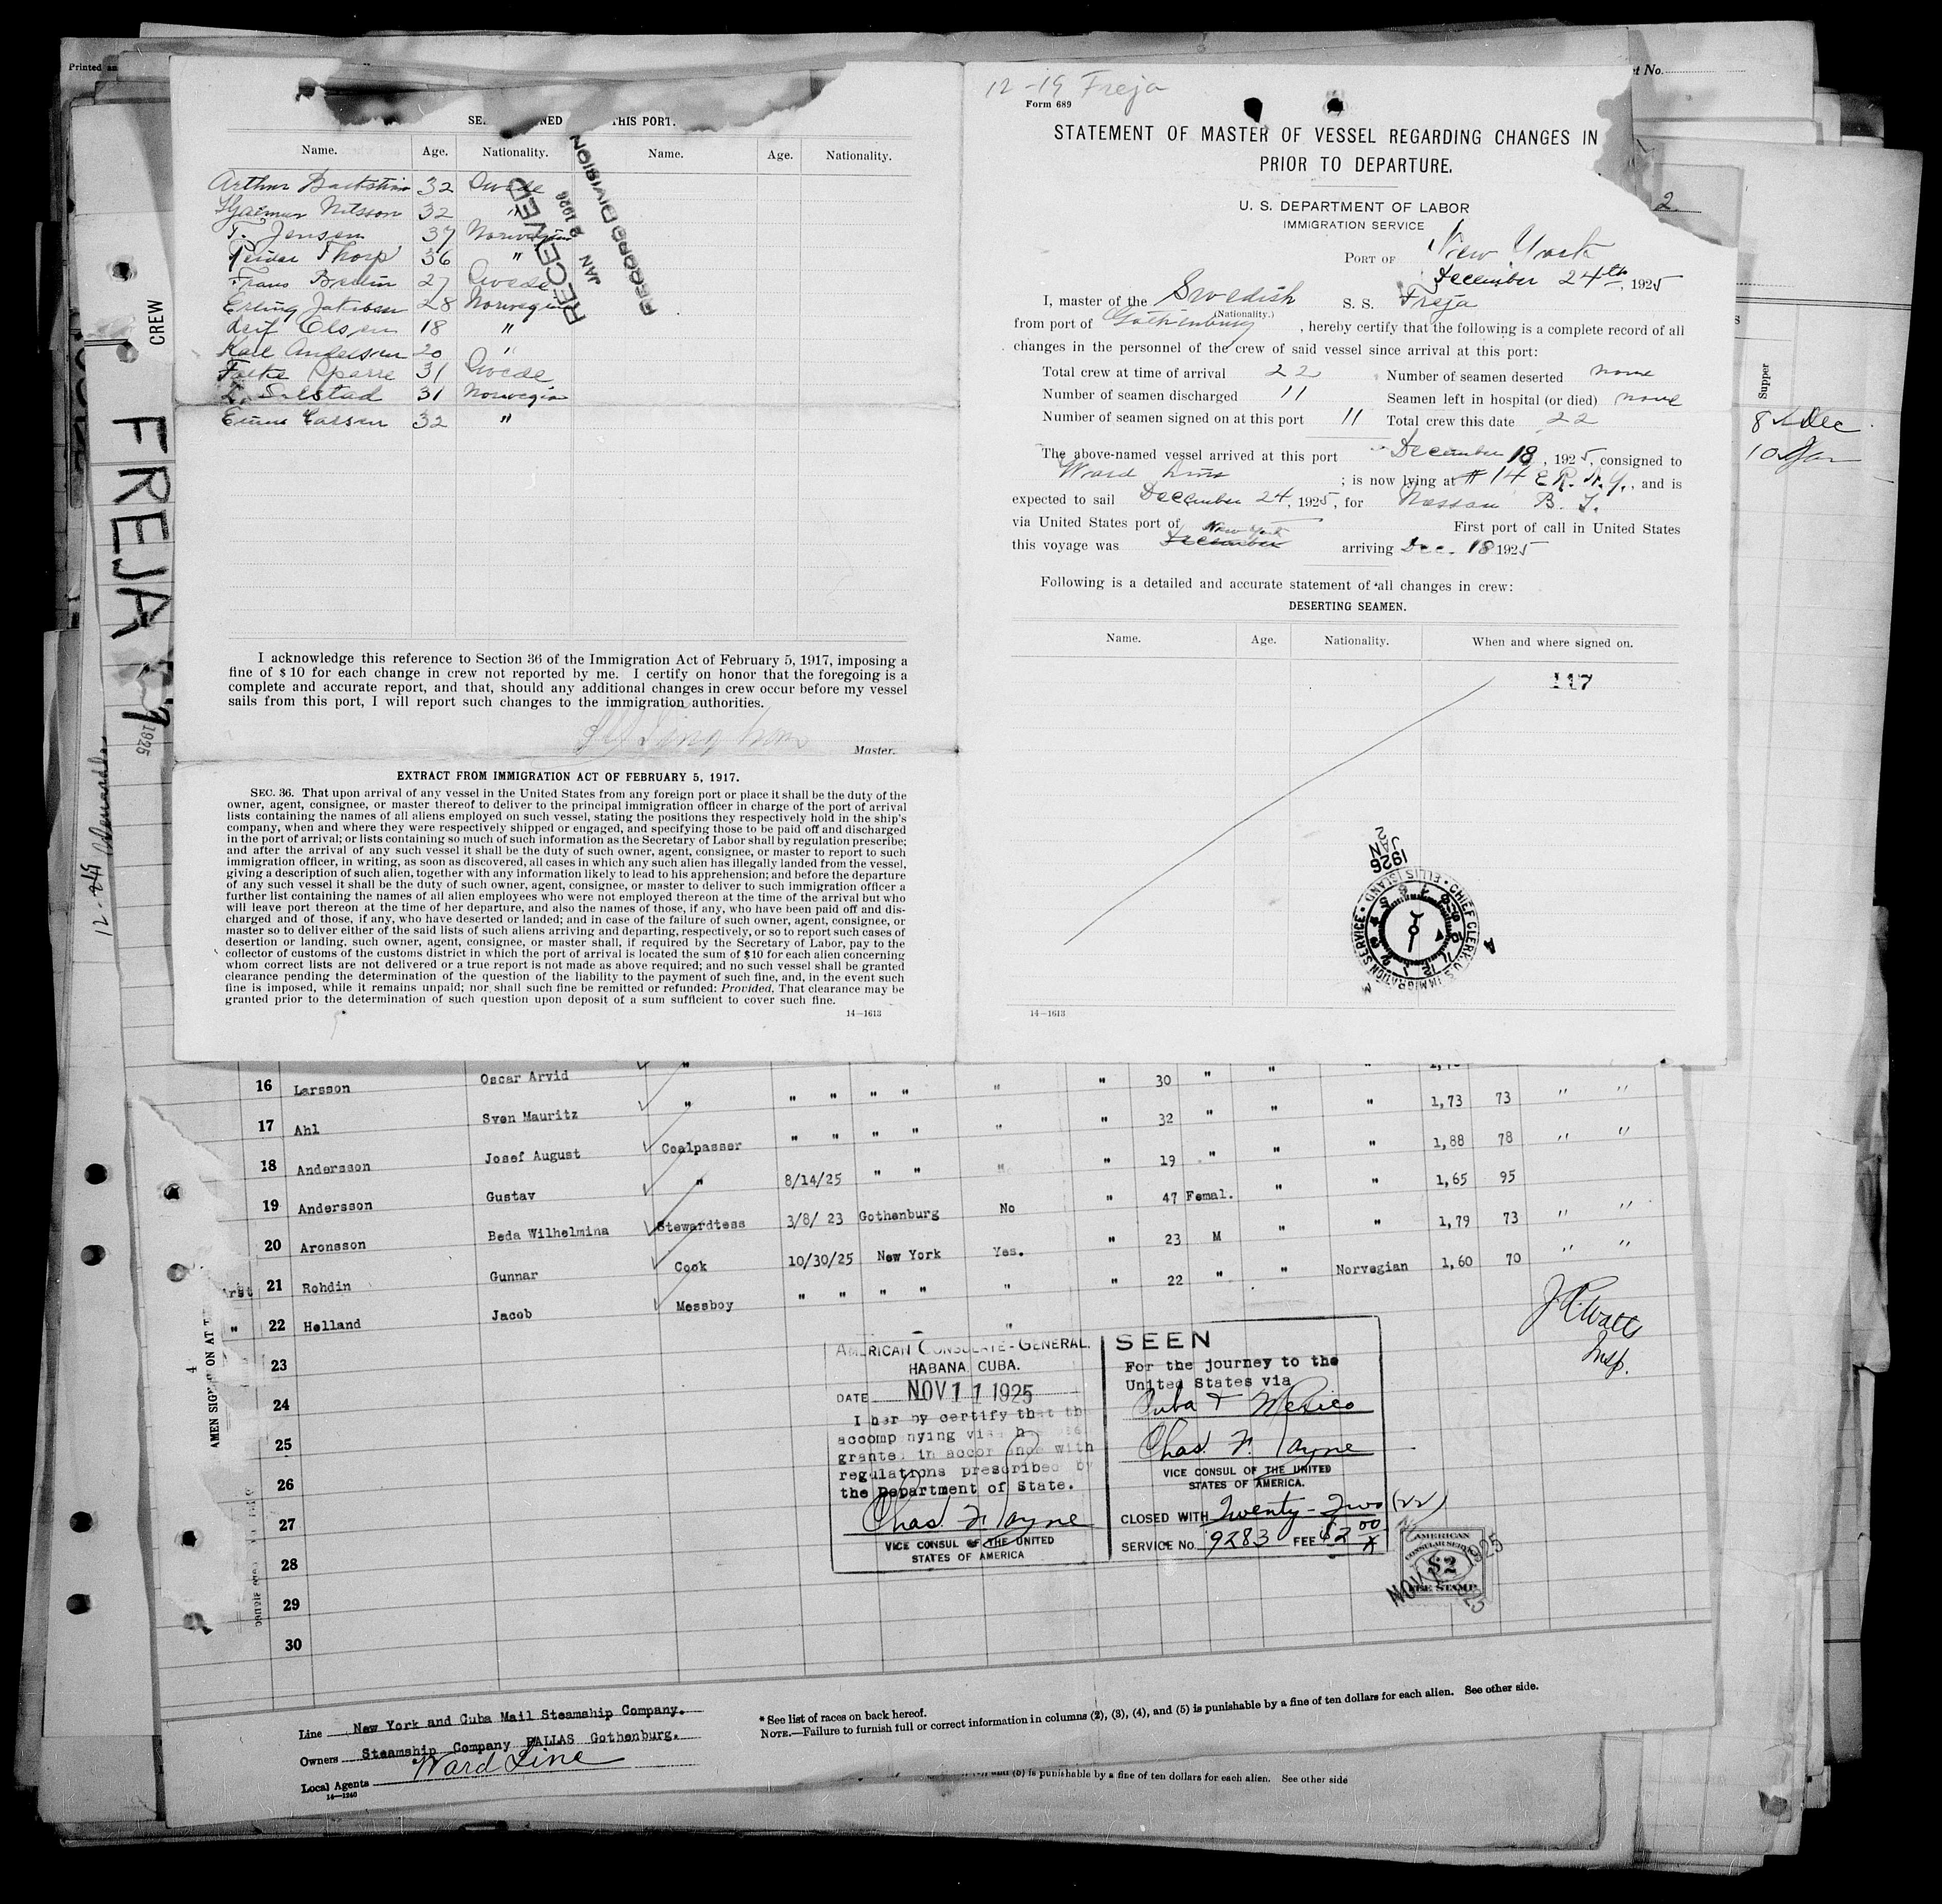 Printed an
t No.
12-19 Freja
Form 689
STATEMENT OF MASTER OF VESSEL REGARDING CHANGES IN
PRIOR TO DEPARTURE.
U. S. DEPARTMENT OF LABOR
IMMIGRATION SERVICE
PORT OF New York
December 24th, 1925
I, master of the Swedish S. S. Freja
(Nationality.)
from port of Gothenburg, hereby certify that the following is a complete record of all
changes in the personnel of the crew of said vessel since arrival at this port:
Total crew at time of arrival 22 Number of seamen deserted none
Number of seamen discharged 11 Seamen left in hospital (or died) none
Number of seamen signed on at this port 11 Total crew this date 22
The above-named vessel arrived at this port December 18, 1925, consigned to
Ward Line; is now lying at #14 E.R. N.Y., and is
expected to sail December 24, 1925, for Nassau B. I.
via United States port of First port of call in United States
this voyage was December New York arriving Dec. 18 1925
Following is a detailed and accurate statement of all changes in crew:
DESERTING SEAMEN.
Name. Age. Nationality. When and where signed on.
117
1926
JAN
2
CHIEF CLERK, U.S. IMMIGRATION SERVICE • ELLIS ISLAND •
14—1613
THIS PORT.
Name. Age. Nationality. Name. Age. Nationality.
Arthur 32 Swede
Hjalmar Nilsson 32 "
T. Jensen 37 Norwegian
Reidar Thorp 36 "
Frans 27 Swede
Erling Jakobsen 28 Norwegian
Leif Olsen 18 "
Karl Andersen 20 "
Folke Sparre 31 Swede
Solstad 31 Norwegian
Larsen 32 "
RECEIVED
JAN 1926
RECORD DIVISION
I acknowledge this reference to Section 36 of the Immigration Act of February 5, 1917, imposing a
fine of $10 for each change in crew not reported by me. I certify on honor that the foregoing is a
complete and accurate report, and that, should any additional changes in crew occur before my vessel
sails from this port, I will report such changes to the immigration authorities.
Master.
EXTRACT FROM IMMIGRATION ACT OF FEBRUARY 5, 1917.
SEC. 36. That upon arrival of any vessel in the United States from any foreign port or place it shall be the duty of the
owner, agent, consignee, or master thereof to deliver to the principal immigration officer in charge of the port of arrival
lists containing the names of all aliens employed on such vessel, stating the positions they respectively hold in the ship's
company, when and where they were respectively shipped or engaged, and specifying those to be paid off and discharged
in the port of arrival; or lists containing so much of such information as the Secretary of Labor shall by regulation prescribe;
and after the arrival of any such vessel it shall be the duty of such owner, agent, consignee, or master to report to such
immigration officer, in writing, as soon as discovered, all cases in which any such alien has illegally landed from the vessel,
giving a description of such alien, together with any information likely to lead to his apprehension; and before the departure
of any such vessel it shall be the duty of such owner, agent, consignee, or master to deliver to such immigration officer a
further list containing the names of all alien employees who were not employed thereon at the time of the arrival but who
will leave port thereon at the time of her departure, and also the names of those, if any, who have been paid off and dis-
charged and of those, if any, who have deserted or landed; and in case of the failure of such owner, agent, consignee, or
master so to deliver either of the said lists of such aliens arriving and departing, respectively, or so to report such cases of
desertion or landing, such owner, agent, consignee, or master shall, if required by the Secretary of Labor, pay to the
collector of customs of the customs district in which the port of arrival is located the sum of $10 for each alien concerning
whom correct lists are not delivered or a true report is not made as above required; and no such vessel shall be granted
clearance pending the determination of the question of the liability to the payment of such fine, and, in the event such
fine is imposed, while it remains unpaid; nor shall such fine be remitted or refunded: Provided, That clearance may be
granted prior to the determination of such question upon deposit of a sum sufficient to cover such fine.
14—1613
CREW
FREJA
1925
2
Supper
8 Dec
10 Jan
16 Larsson Oscar Arvid " " " " " " " 30 " " "
17 Ahl Sven Mauritz " " " " " " " 32 " " " 1,73 73 " "
18 Andersson Josef August Coalpasser " " " " " " 19 " " " 1,88 78 " "
19 Andersson Gustav " 8/14/25 " " " 1,65 95
20 Aronsson Beda Wilhelmina Stewardtess 3/8/ 23 Gothenburg No " 47 Femal. " " 1,79 73 " "
21 Rohdin Gunnar Cook 10/30/25 New York Yes. " 23 M " Norwegian 1,60 70 " "
" 22 Helland Jacob Messboy " " " " " " 22 " "
23
24
25
26
27
28
29
30
J. R. Watts
Insp.
AMERICAN CONSULATE-GENERAL.
HABANA, CUBA.
DATE NOV 11 1925
I hereby certify that the
accompanying visa has been
granted in accordance with
regulations prescribed by
the Department of State.
Chas. F. Payne
VICE CONSUL OF THE UNITED
STATES OF AMERICA
SEEN
For the journey to the
United States via
Cuba & Mexico
Chas. F. Payne
VICE CONSUL OF THE UNITED
STATES OF AMERICA.
CLOSED WITH Twenty-Two (22)
SERVICE No. 9283 FEE $2 00
AMERICAN
CONSULAR SERVICE
$2
FEE STAMP
Line New York and Cuba Mail Steamship Company.
Owners Steamship Company PALLAS Gothenburg.
Local Agents Ward Line
14—1240
* See list of races on back hereof.
NOTE.—Failure to furnish full or correct information in columns (2), (3), (4), and (5) is punishable by a fine of ten dollars for each alien. See other side.
and (5) is punishable by a fine of ten dollars for each alien. See other side